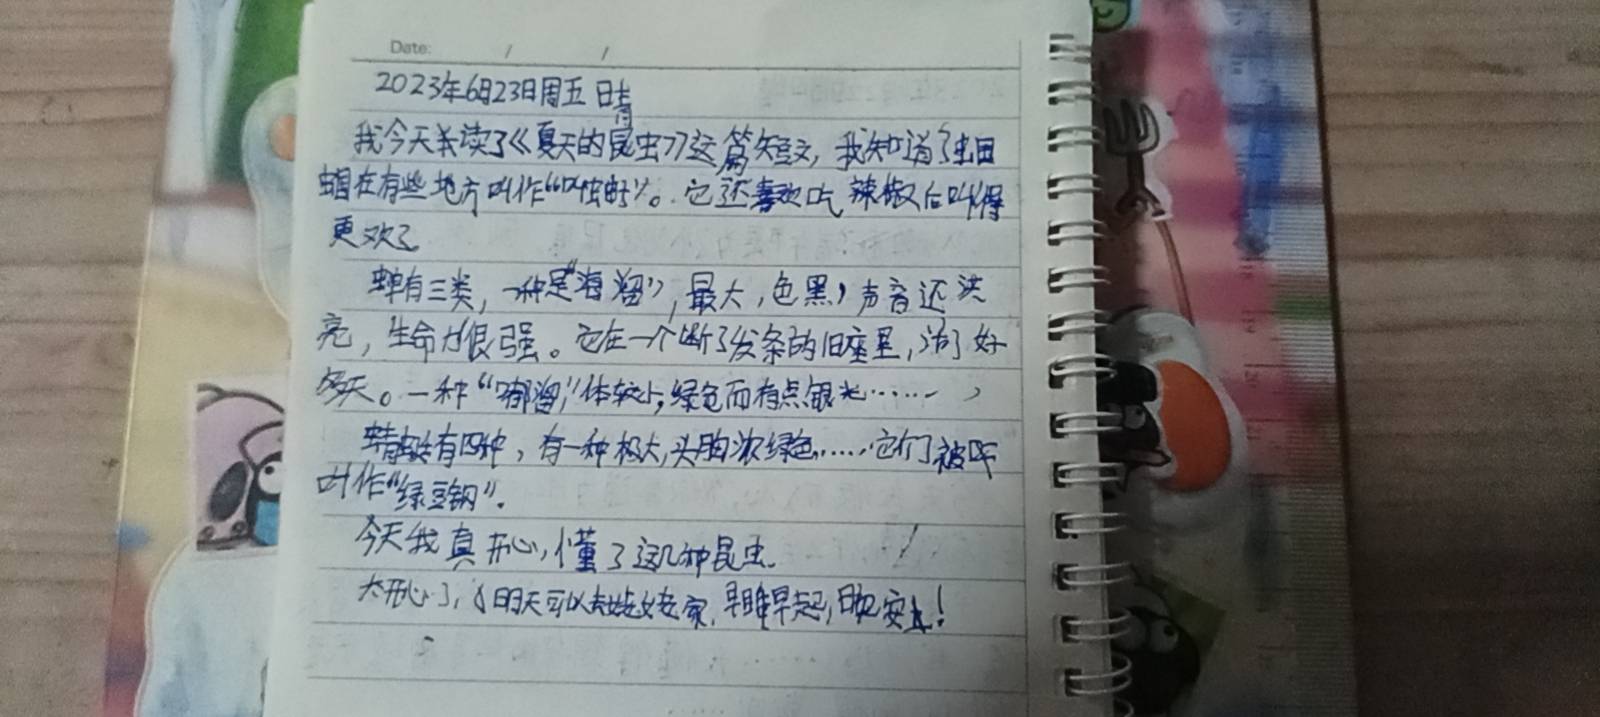 Date: / /
2023年6月23日周五 晴
我今天读了《夏天的昆虫》这篇短文,我知道了蝈
蝈在有些地方叫作“叫蚰子”。它还喜欢吃辣椒后叫得
更欢了
蝉有三类,一种是“海溜”,最大,色黑,声音还洪
亮,生命力很强。它在一个断了发条的旧座里,活了好
多天。一种“嘟溜”,体较小,绿色而有点银光……,
蜻蜓有四种,有一种极大,头胸浓绿色……它们被
叫作“绿豆钢”.
今天我真开心,懂了这几种昆虫.
太开心了,明天可以去婆婆家,早睡早起,晚安!